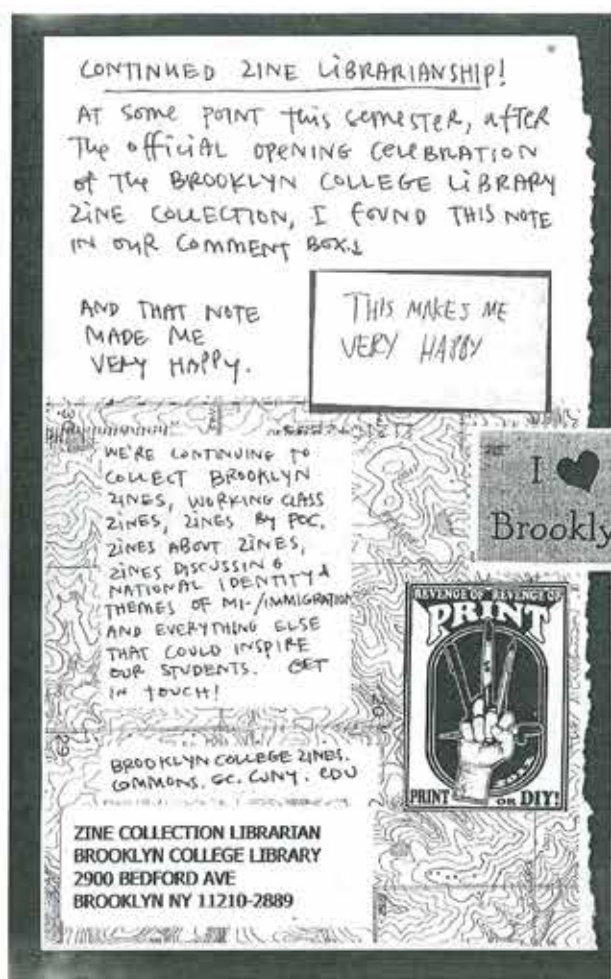 CONTINUED ZINE LIBRARIANSHIP!
AT SOME POINT this SEMESTER, AFTER
The OFFICIAL OPENING CELEBRATION
of The BROOKLYN COLLEGE LIBRARY
ZINE COLLECTION, I FOUND THIS NOTE
IN OUR COMMENT BOX↓
AND THAT NOTE
MADE ME
VERY HAPPY.
THIS MAKES ME
VERY HAPPY
WE'RE CONTINUING TO
COLLECT BROOKLYN
ZINES, WORKING CLASS
ZINES, ZINES BY POC,
ZINES ABOUT ZINES,
ZINES DISCUSSING
NATIONAL IDENTITY &
THEMES OF MI-/IMMIGRATION
AND EVERYTHING ELSE
THAT COULD INSPIRE
OUR STUDENTS. GET
IN TOUCH!
I ♥
Brookly
REVENGE OF REVENGE OF
PRINT
2012
PRINT OR DIY!
BROOKLYN COLLEGE ZINES.
COMMONS.GC.CUNY.EDU
ZINE COLLECTION LIBRARIAN
BROOKLYN COLLEGE LIBRARY
2900 BEDFORD AVE
BROOKLYN NY 11210-2889
29
20